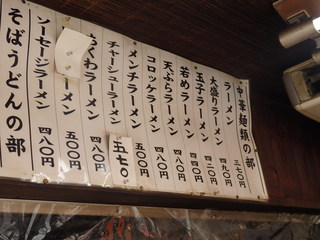 中華麺類の部
ラーメン 三七〇円
大盛りラーメン 四九〇円
玉子ラーメン 四二〇円
若めラーメン 四四〇円
天ぷらラーメン 四八〇円
コロッケラーメン 四八〇円
メンチラーメン 五〇〇円
チャーシューラーメン 五七〇
ちくわラーメン 四八〇円
ラーメン 五〇〇円
ソーセージラーメン 四八〇円
そばうどんの部